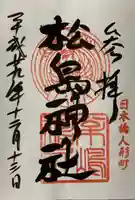 奉拝
日本橋人形町
松島神社
平成廿九年十二月十三日